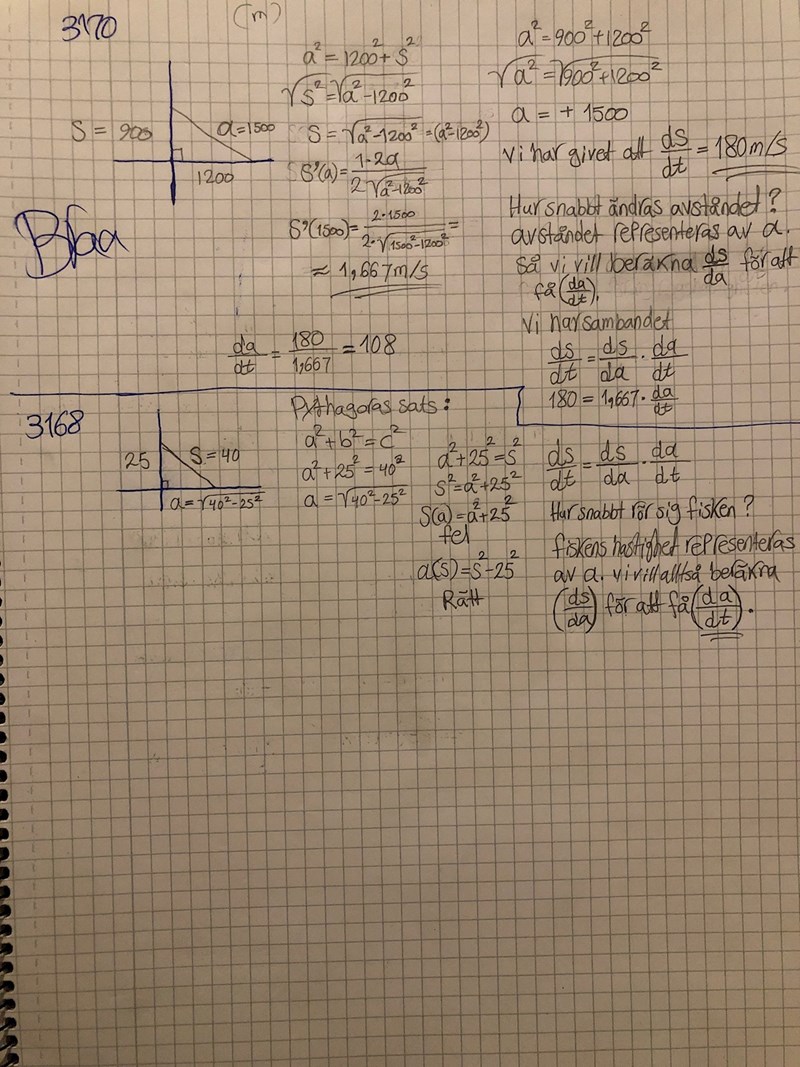 3170
(m)
S = 900
a=1500
1200
Bláa
a²=1200²+S²
√S²=√a²-1200²
S=√a²-1200²=(a²-1200²)
S'(a)=1·2a/2√a²-1200²
S'(1500)=2·1500/2·√1500²-1200²=
≈1,667m/s
da/dt=180/1,667=108
a²=900²+1200²
√a²=√900²+1200²
a=+1500
Vi har givet att ds/dt=180m/s
Hur snabbt ändras avståndet?
avståndet representeras av a.
Så vi vill beräkna ds/da för att
få(da/dt).
Vi har sambandet
ds/dt=ds/da·da/dt
180=1,667·da/dt
3168
25
S=40
a=√40²-25²
Pythagoras sats:
a²+b²=c²
a²+25²=40²
a=√40²-25²
a²+25²=S²
S²=a²+25²
S(a)=a²+25²
fel
a(s)=S²-25²
Rätt
ds/dt=ds/da·da/dt
Hur snabbt rör sig fisken?
fiskens hastighet representeras
av a. vi vill alltså beräkna
(ds/da) för att få(da/dt).